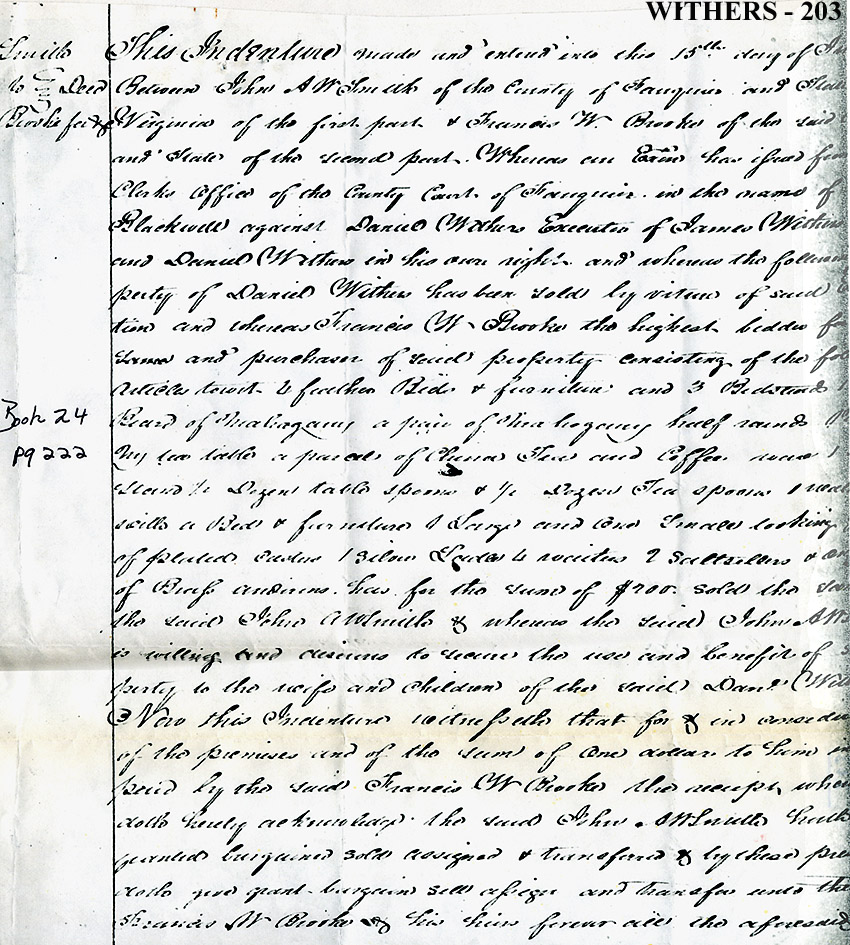 WITHERS - 203
Smith
to Deed
Brooke for &c
This Indenture made and entered into this 15th day of
Between John A W Smith of the County of Fauquier and State
Virginia of the first part & Francis W. Brooke of the said
and State of the second part. Whereas an Exōn has issued from
Clerks Office of the County Court of Fauquier in the name of
Blackwell against Daniel Withers Executor of James Withers
and Daniel Withers in his own right and whereas the following
perty of Daniel Withers has been sold by virtue of said
tion and whereas Francis W. Brooke the highest bidder
same and purchaser of said property consisting of the
articles towit feather Beds & furniture and 3 Bedsteads
Book 24
pg 222
of Mahogany a pair of Mahogany half round
tea table a parcel of China Tea and Coffee ware 1
Stand ½ Dozen table spoons & ½ Dozen Tea spoons 1
with a Bed & furniture 1 Large and One Small looking
of plated castors 1 Silver Ladle 4 waiters 2 Saltsellers &
of Brass andirons has for the sum of $700 sold the
the said John A W Smith & whereas the said John A W
is willing and desirous to secure the use and benefit of
perty to the wife and Children of the said Danl
Now this Indenture witnesseth that for & in
of the premises and of the sum of One dollar to him in
paid by the said Francis W Brooke the receipt
doth hereby acknowledge the said John A W Smith hath
granted bargained sold assigned & transfered & by these
doth give grant bargain sell assign and transfer unto the
Francis W Brooke & his heirs forever all the aforesaid